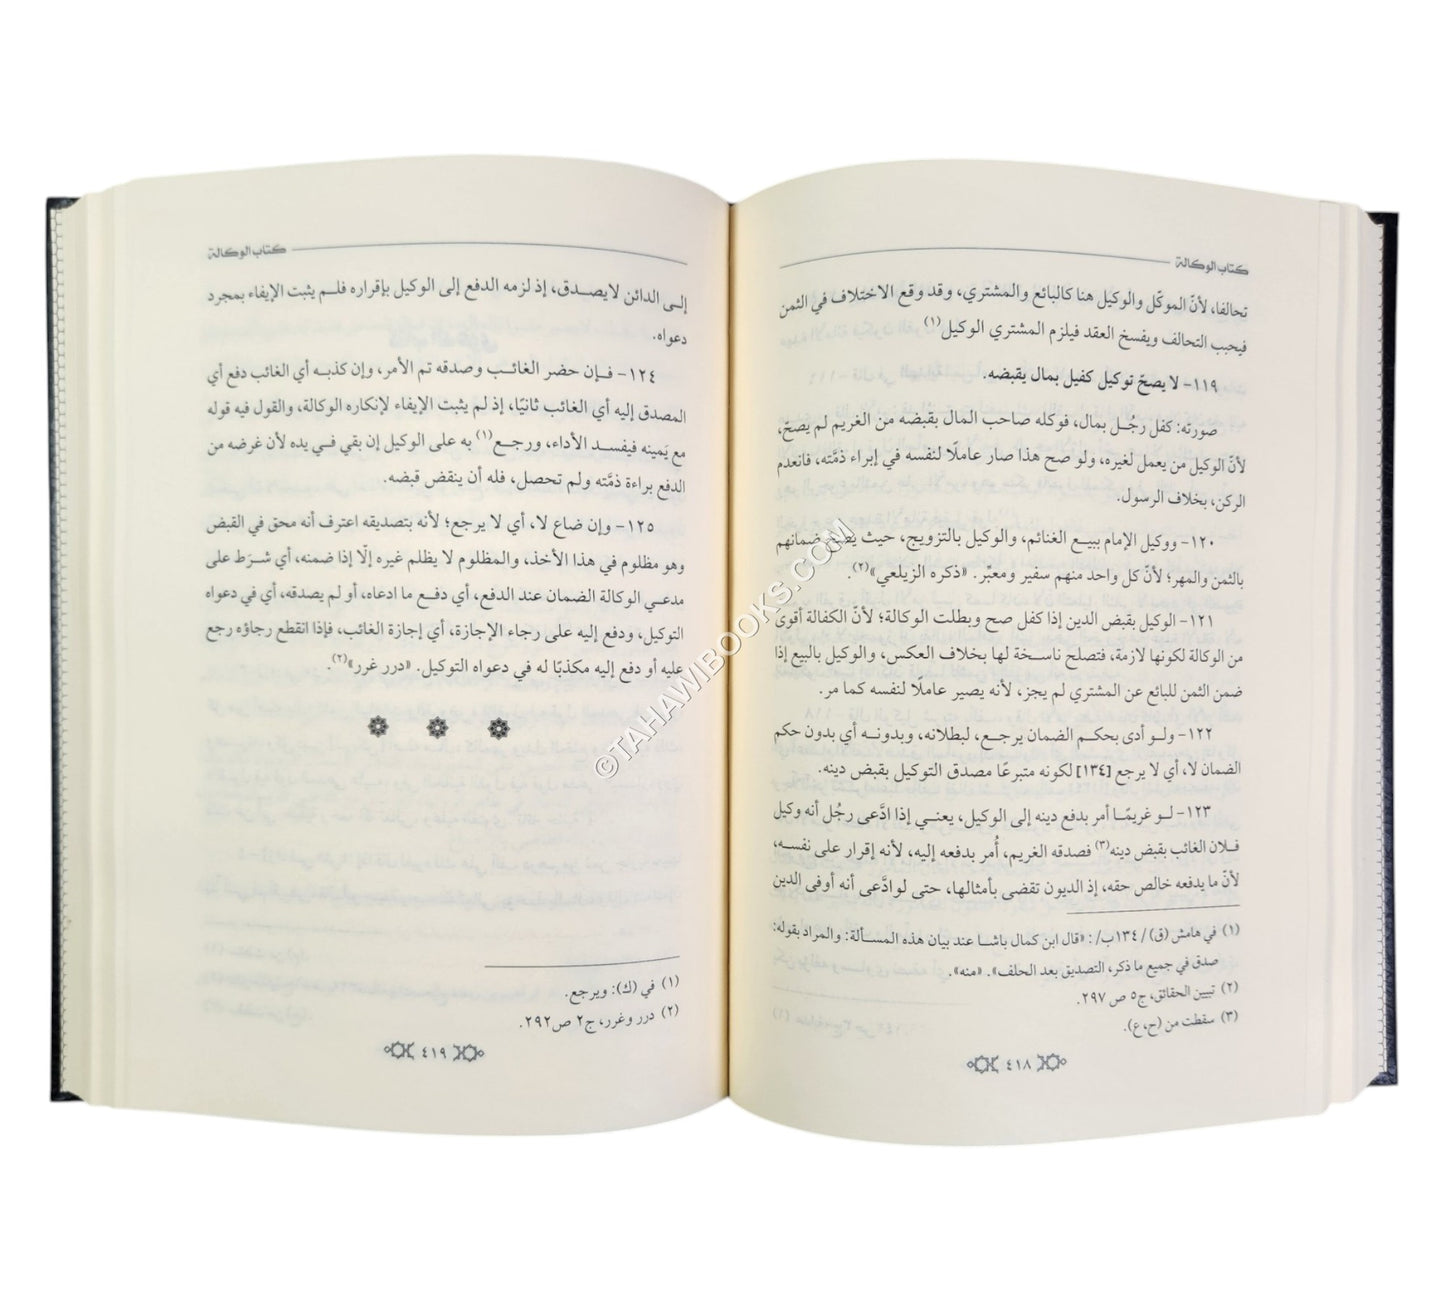 كتاب الوكالة
تحالفا، لأنّ الموكّل والوكيل هنا كالبائع والمشتري، وقد وقع الاختلاف في الثمن
فيجب التحالف ويفسخ العقد فيلزم المشتري الوكيل(١)
١١٩- لا يصحّ توكيل كفيل بمال يقبضه.
صورته: كفل رجُل بمال، فوكله صاحب المال بقبضه من الغريم لم يصحّ،
لأنّ الوكيل من يعمل لغيره، ولو صح هذا صار عاملًا لنفسه في إبراء ذمَّته، فانعدم
الركن، بخلاف الرسول.
١٢٠- ووكيل الإمام ببيع الغنائم، والوكيل بالتزويج، حيث يصح ضمانهم
بالثمن والمهر؛ لأنّ كل واحد منهم سفير ومعبّر. «ذكره الزيلعي»(٢).
١٢١- الوكيل بقبض الدين إذا كفل صح وبطلت الوكالة؛ لأنّ الكفالة أقوى
من الوكالة لكونها لازمة، فتصلح ناسخة لها بخلاف العكس، والوكيل بالبيع إذا
ضمن الثمن للبائع عن المشتري لم يجز، لأنه يصير عاملًا لنفسه كما مر.
١٢٢- ولو أدى بحكم الضمان يرجع، لبطلانه، وبدونه أي بدون حكم
الضمان لا، أي لا يرجع [١٣٤] لكونه متبرعًا مصدق التوكيل بقبض دينه.
١٢٣- لو غريمًا أمر بدفع دينه إلى الوكيل، يعني إذا ادَّعى رجُل أنه وكيل
فلان الغائب بقبض دينه(٣) فصدقه الغريم، أُمر بدفعه إليه، لأنه إقرار على نفسه،
لأنّ ما يدفعه خالص حقه، إذ الديون تقضى بأمثالها، حتى لو ادَّعى أنه أوفى الدين
(١) في هامش (ق) /١٣٤ب/: «قال ابن كمال باشا عند بيان هذه المسألة: والمراد بقوله:
صدق في جميع ما ذكر، التصديق بعد الحلف». «منه».
(٢) تبيين الحقائق، ج٥ ص ٢٩٧.
(٣) سقطت من (ح،ع).
٤١٨
كتاب الوكالة
إلى الدائن لا يصدق، إذ لزمه الدفع إلى الوكيل بإقراره فلم يثبت الإيفاء بمجرد
دعواه.
١٢٤- فإن حضر الغائب وصدقه تم الأمر، وإن كذبه أي الغائب دفع أي
المصدق إليه أي الغائب ثانيًا، إذ لم يثبت الإيفاء لإنكاره الوكالة، والقول فيه قوله
مع يَمينه فيفسد الأداء، ورجع(١) به على الوكيل إن بقي في يده لأن غرضه من
الدفع براءة ذمَّته ولم تحصل، فله أن ينقض قبضه.
١٢٥- وإن ضاع لا، أي لا يرجع؛ لأنه بتصديقه اعترف أنه محق في القبض
وهو مظلوم في هذا الأخذ، والمظلوم لا يظلم غيره إلّا إذا ضمنه، أي شرَط على
مدعي الوكالة الضمان عند الدفع، أي دفع ما ادعاه، أو لم يصدقه، أي في دعواه
التوكيل، ودفع إليه على رجاء الإجازة، أي إجازة الغائب، فإذا انقطع رجاؤه رجع
عليه أو دفع إليه مكذبًا له في دعواه التوكيل. «درر غرر»(٢).
(١) في (ك): ويرجع.
(٢) درر وغرر، ج٢ ص٢٩٢.
٤١٩
©TAHAWIBOOKS.COM